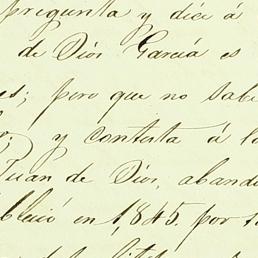 pregunta y dice á
de Dios Garcia es
es; pero que no sabe
y contesta á la
Juan de Dios, abando
bleció en 1,845. por